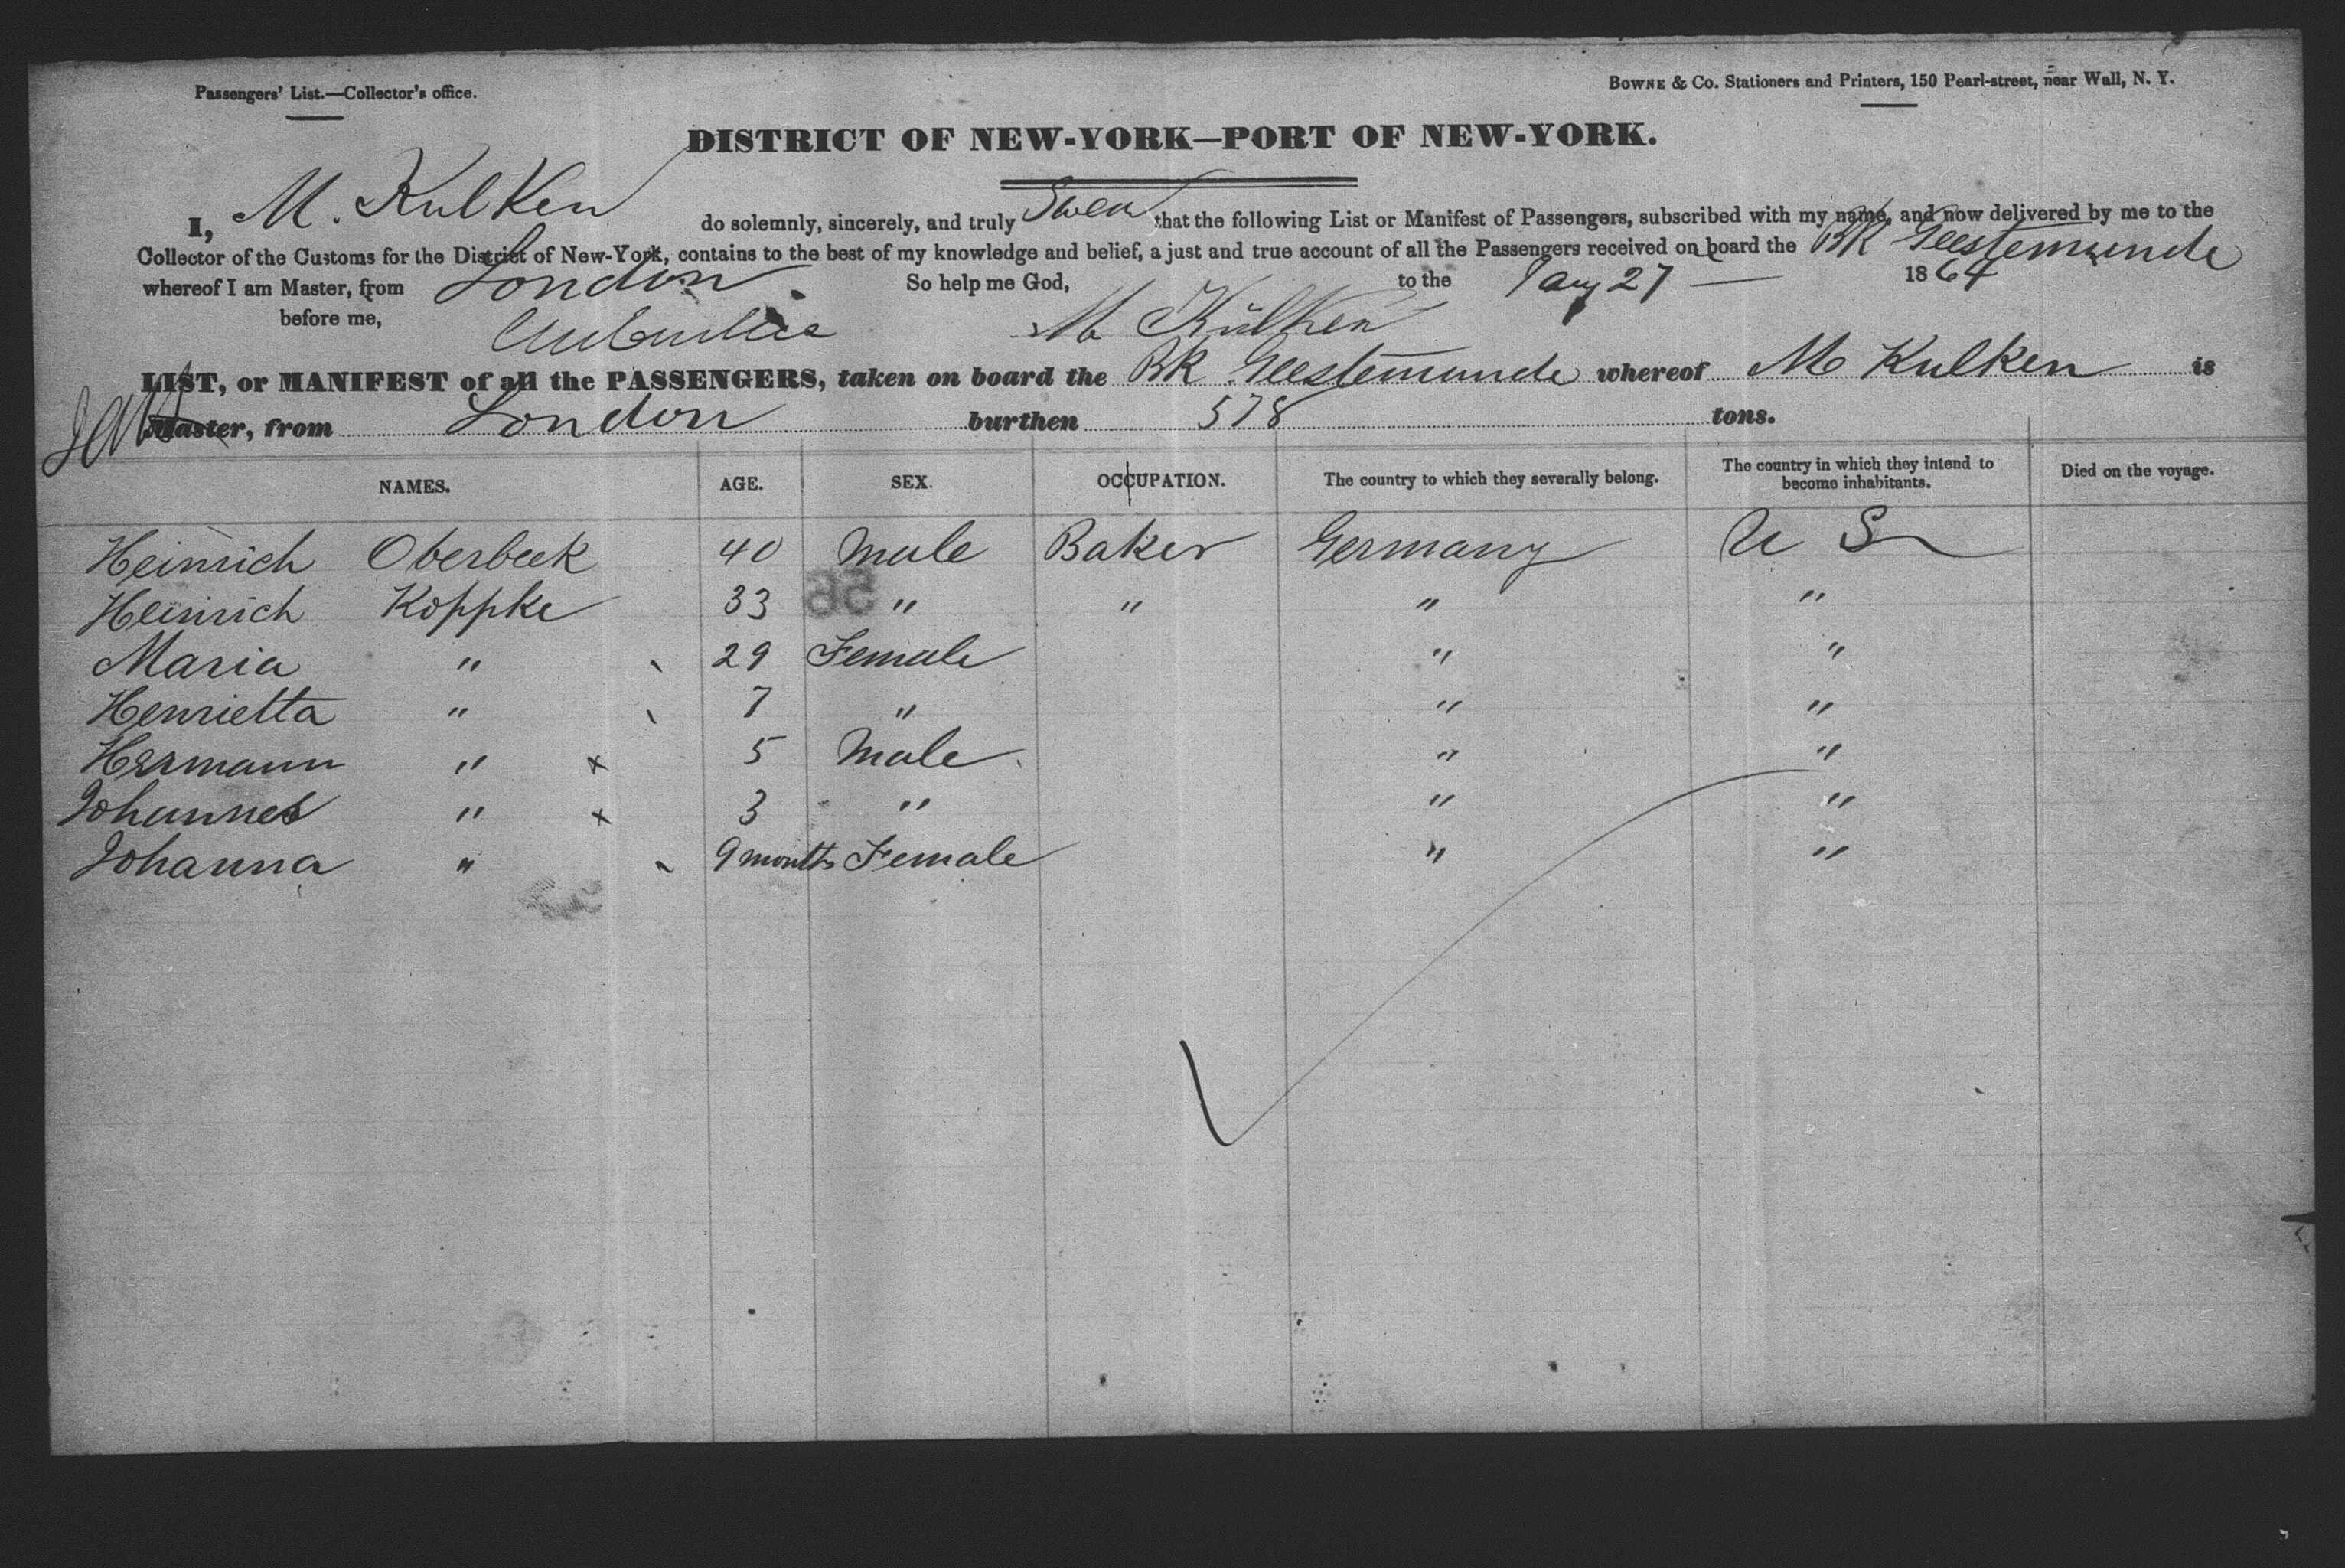 Passengers' List.—Collector's office.
BOWNE & Co. Stationers and Printers, 150 Pearl-street, near Wall, N. Y.
DISTRICT OF NEW-YORK—PORT OF NEW-YORK.
I, M. Kulken do solemnly, sincerely, and truly Swear that the following List or Manifest of Passengers, subscribed with my name, and now delivered by me to the
Collector of the Customs for the District of New-York, contains to the best of my knowledge and belief, a just and true account of all the Passengers received on board the BK Geestemunde
whereof I am Master, from London So help me God, to the Jany 27 — 1864
before me, M Külken
LIST, or MANIFEST of all the PASSENGERS, taken on board the BK Geestemunde whereof M Kulken is
Master, from London burthen 578 tons.
NAMES. AGE. SEX. OCCUPATION. The country to which they severally belong. The country in which they intend to become inhabitants. Died on the voyage.
Heinrich Oberbeek 40 Male Baker Germany U S
Heinrich Koppke 33 " " " "
Maria " 29 Female " "
Henrietta " 7 " " "
Hermann " x 5 Male " "
Johannes " x 3 " " "
Johanna " 9 months Female " "